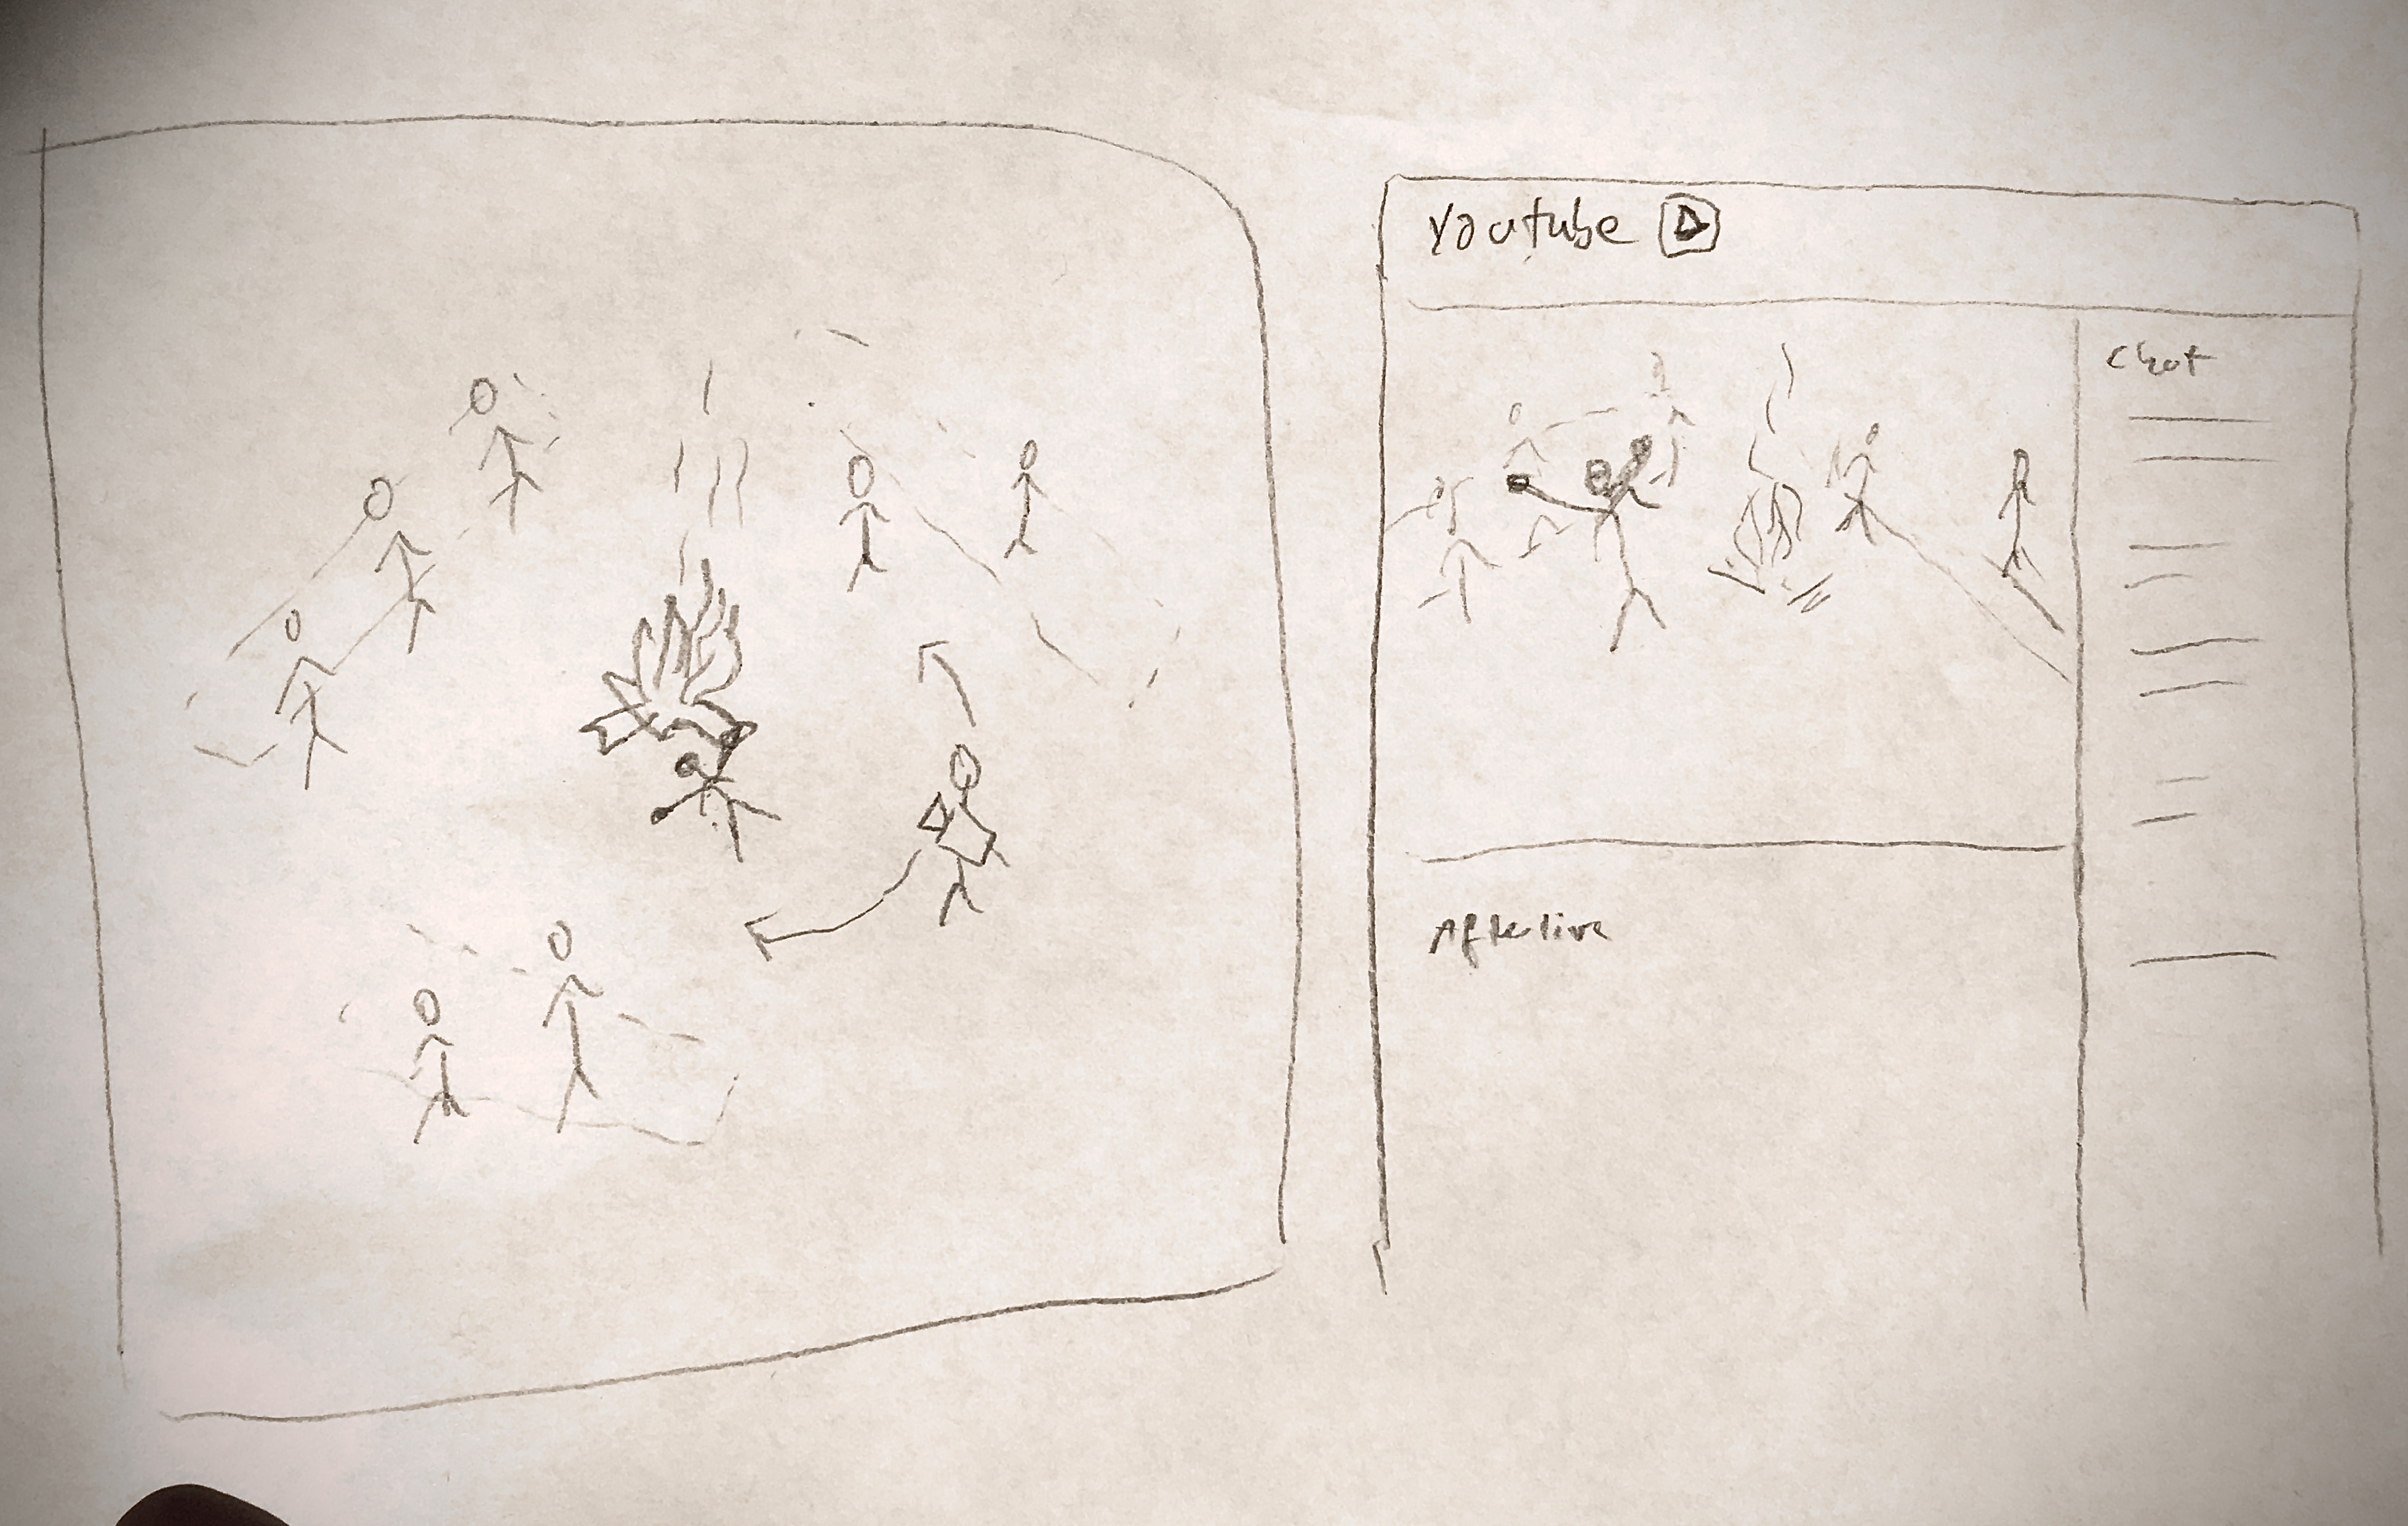 Youtube
Chat
Afterlive